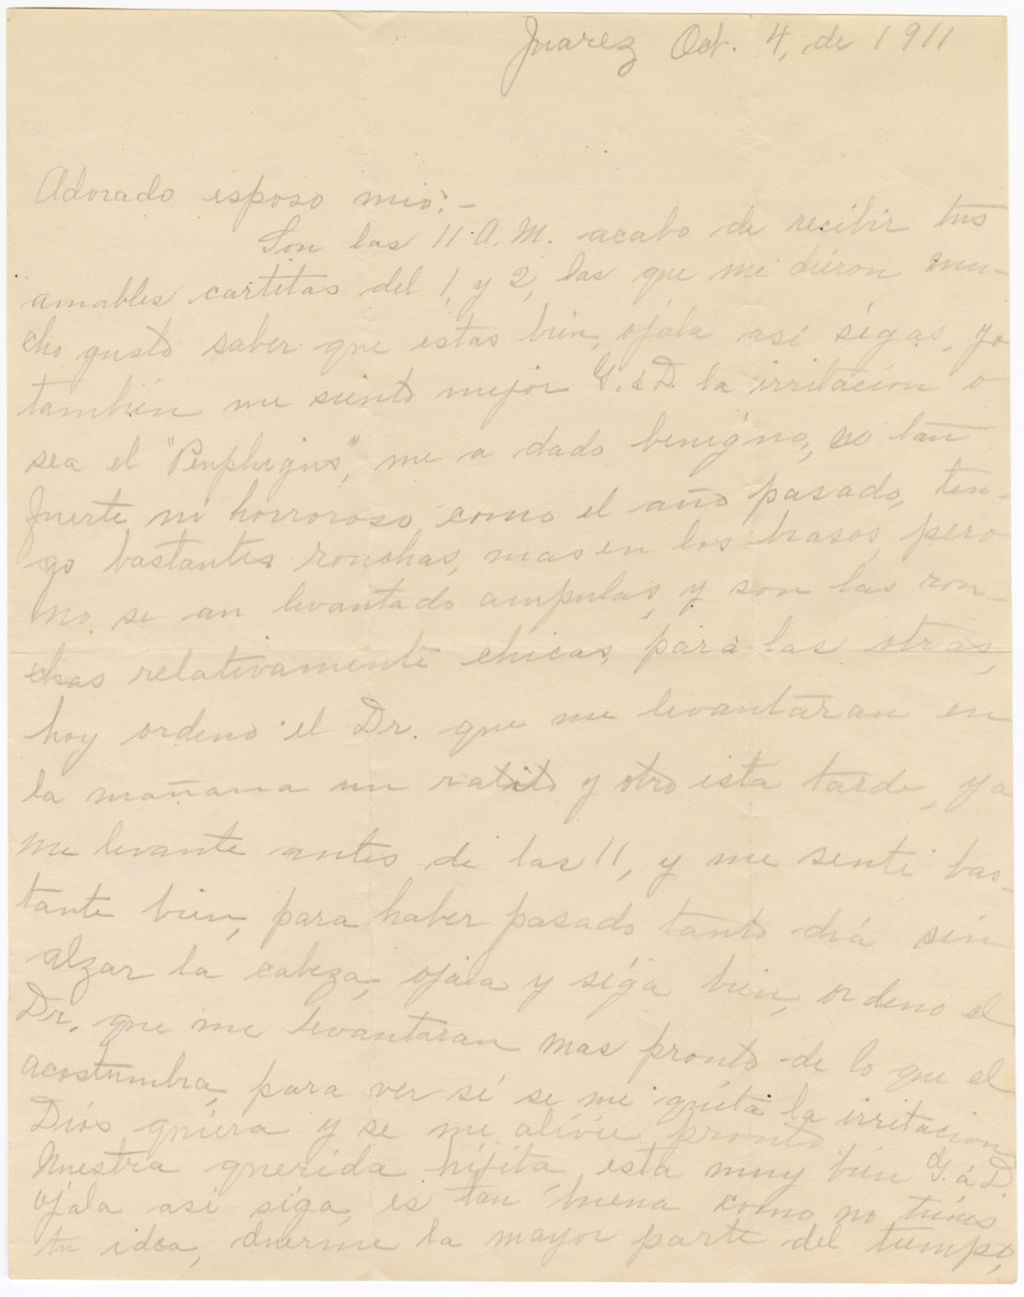 Juarez Oct. 4, de 1911
Adorado esposo mio:-
Son las 11 A.M. acabo de recibir tus
amables cartitas del 1, y 2, las que me diéron mu-
cho gusto saber que estas bién, ojala asi sigas, yo
tambien me siento mejor G. á D. la irritación o
sea el "Penphigus", me a dado benigno, no tan
fuerte ni horroroso, como el año pasado, ten-
go bastantes ronchas, mas en los brasos, pero
no se an levantado ampulas, y son las ron-
chas relativamente chicas, para las otras,
hoy ordeno el Dr. que me levantaran en
la mañana un ratito y otro esta tarde, ya
me levante antes de las 11, y me senti bas-
tante bien, para haber pasado tanto diá sin
alzar la cabeza, ojala y siga bien, ordeno el
Dr. que me levantaran mas pronto de lo que el
acostumbra, para ver si se me quita la irritacion
Diós quiera y se me alivie pronto.
Nuestra querida hijita esta muy bién G. á D.
ojala asi siga, es tan buena como no tienes
tu idea, duerme la mayor parte del tiempo,